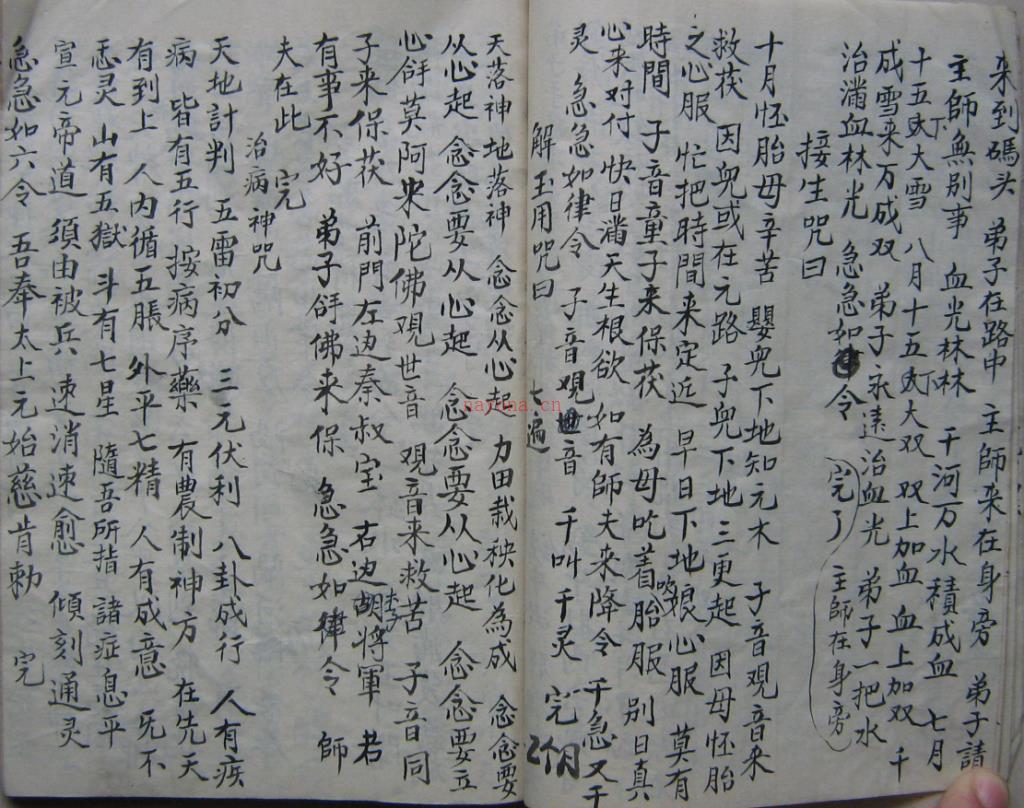 来到碼头 弟子在路中 主師来在身旁 弟子請
主師無别事 血光林林 千河万水積成血 七月
十五大雪 八月十五大双 双上加血 血上加双 千
成雪来万成双 弟子永遠治血光 弟子一把水
治滿血林光 急急如律令 完了 主師在身旁
接生咒曰
十月怪胎母辛苦 嬰兒下地知元木 子音观音来
救茯 因兒或在元路 子兒下地三更起 因母怪胎
之心服 忙把時間来定近 早日下地娘心服 莫有
時間 子音童子来保茯 為母吃着胎服 别日真
心来对付 快日滿天生根欲 如有師夫来降令 千急又千
灵 急急如律令 子音观世音 千叫千灵 完
解玉用咒曰 七遍
天落神 地落神 念念从心起 力田栽秧化為成 念念要
从心起 念念要从心起 念念要从心起 念念要立
心 莫阿来陀佛观世音 观音来救苦 子音同
子来保茯 前門左边秦叔宝 右边胡将軍 若
有事不好 弟子 佛来保 急急如律令 師
夫在此 完
治病神咒
天地計判 五雷初分 三元伏利 八卦成行 人有疾
病 皆有五行 按病序藥 有農制神方 在先天
有到上 人内循五脹 外平七精 人有成意 旡不
恶灵 山有五獄 斗有七星 隨吾所指 諸症息平
宣元帝道 須由被兵 速消速愈 傾刻通灵
急急如六令 吾奉太上元始慈肯勅 完
nayona.cn